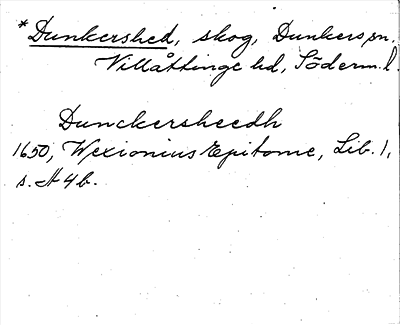 *Dunkershed, skog, Dunkers sn.
Villåttinge hd, Söderm.l.
Dunckersheedh
1650, Wexionius Epitome, Lib. 1,
s. A 4 b.